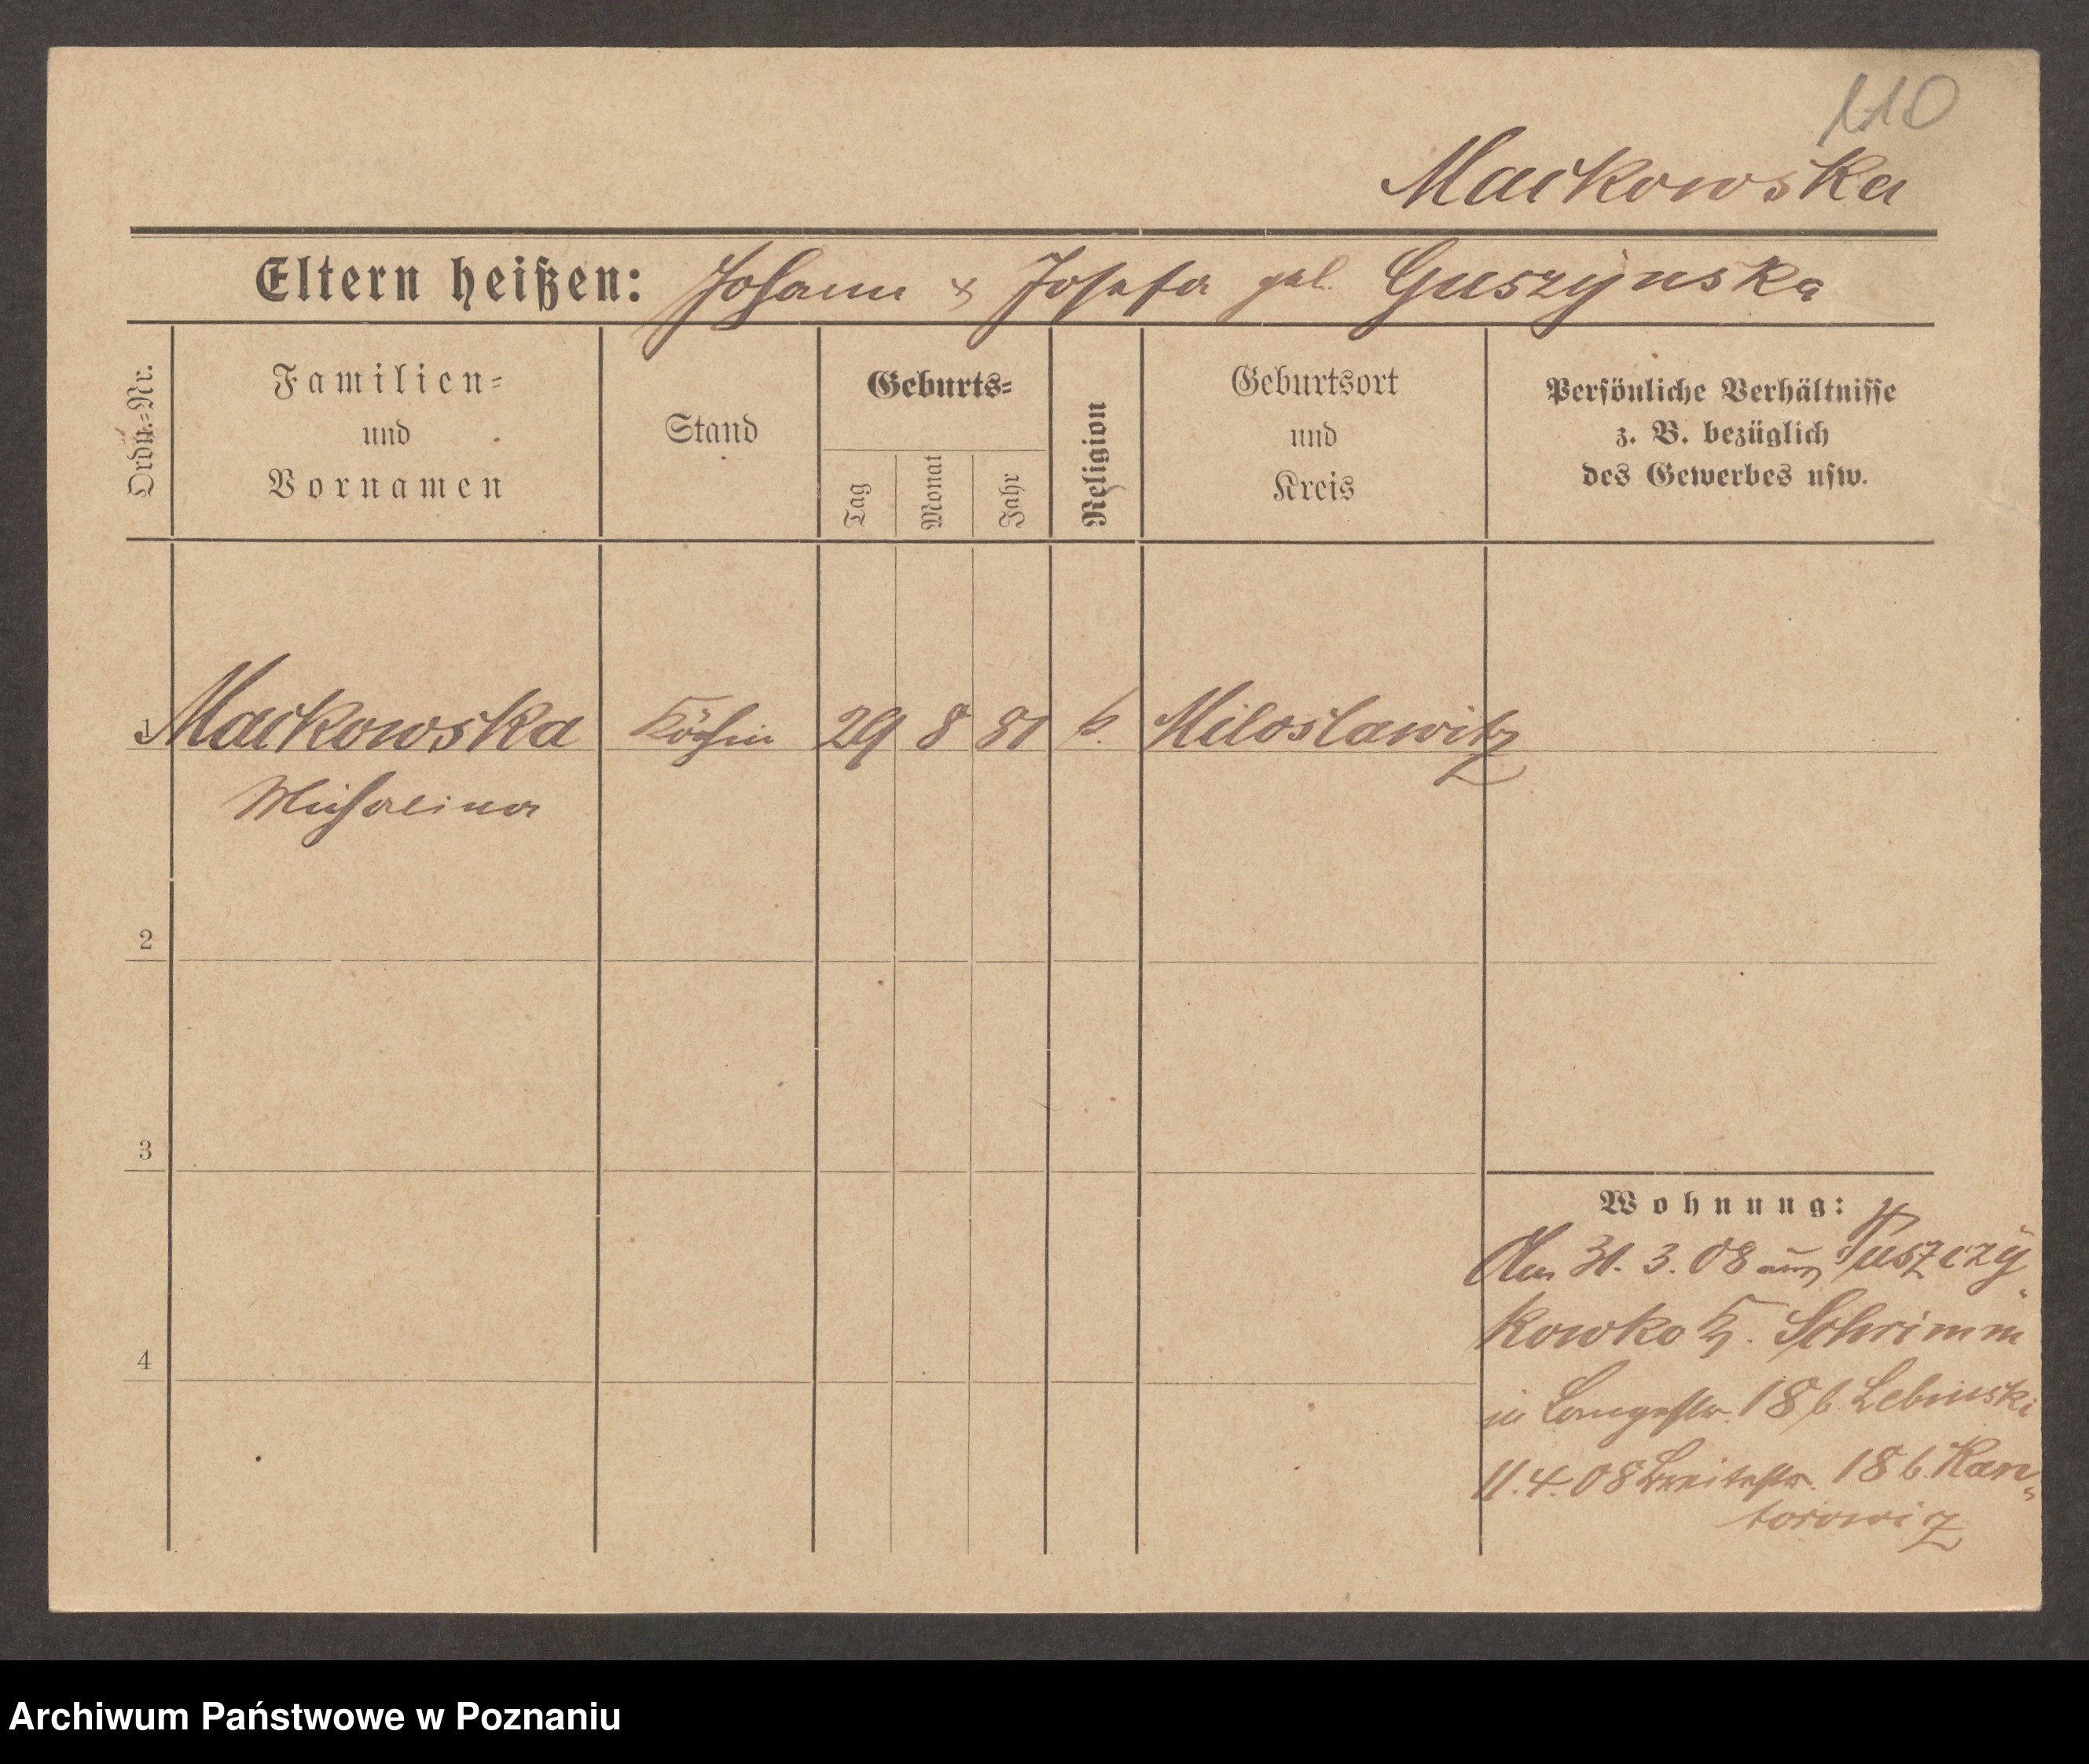 110
Maćkowska
Eltern heißen: Johann & Josefa geb. Guszynska
Ordn.=Nr.
Familien=
und
Vornamen
Stand
Geburts=
Tag
Monat
Jahr
Religion
Geburtsort
und
Kreis
Persönliche Verhältnisse
z. B. bezüglich
des Gewerbes usw.
1 Maćkowska Köchin 29 8 81 k. Miloslawitz
Michalina
2
3
4
Wohnung:
Am 31. 3. 08 aus Puszczy-
kowko Kr. Schrimm
in Langestr. 18 b. Lebinski
11. 4. 08 Breitestr. 18 b. Kan-
torowiz
Archiwum Państwowe w Poznaniu